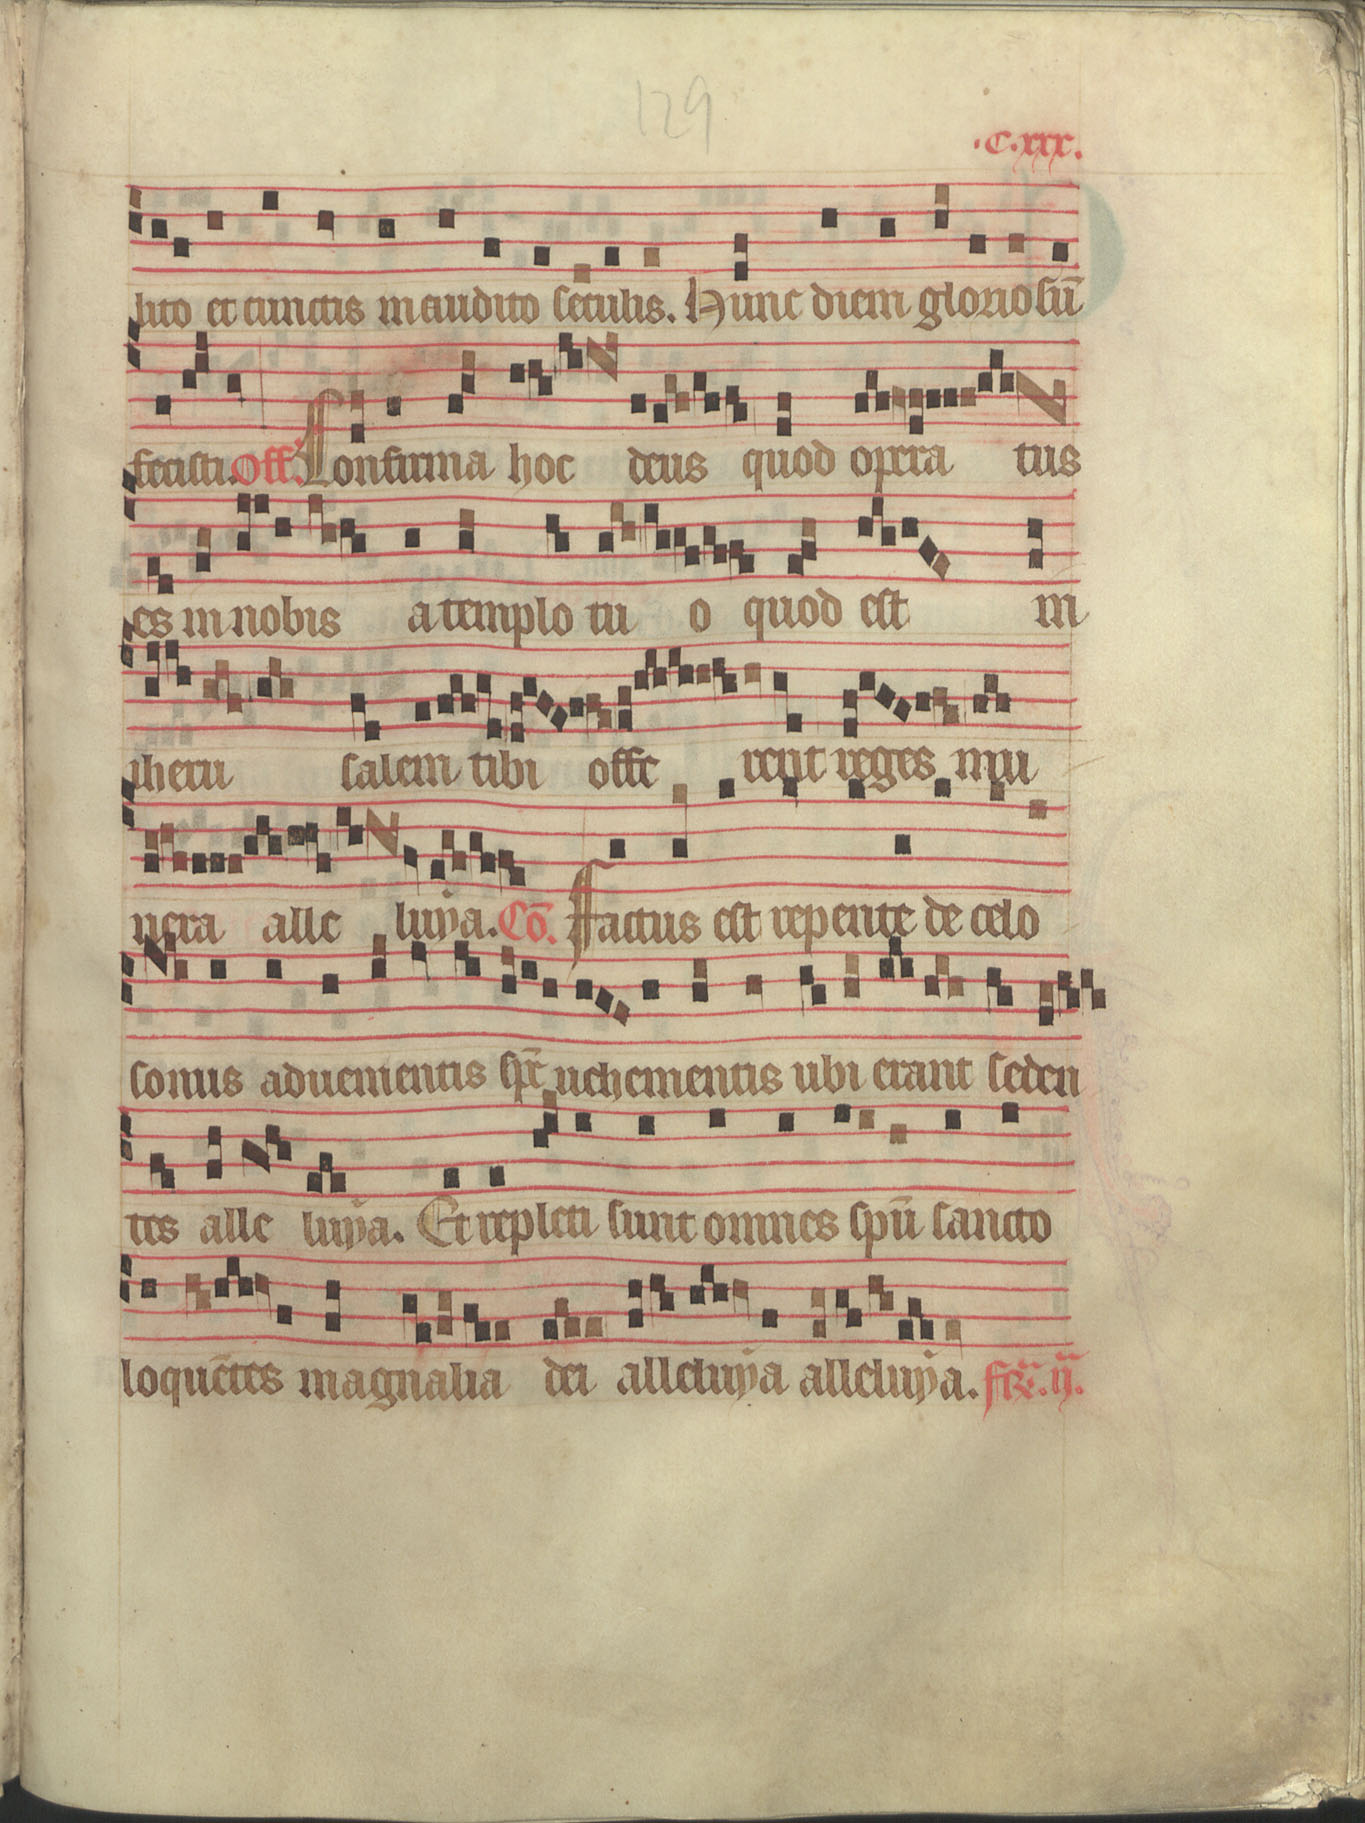 129
.C.xxx.
lito et cunctis inaudito seculis. Hunc diem gloriosū
fecisti. Off. Confirma hoc deus quod opera tus
es in nobis a templo tu o quod est in
iheru salem tibi offe rent reges mu
nera alle luya. Cō. Factus est repente de celo
sonus aduenientis spr̄ uehementis ubi erant seden
tes alle luya. Et repleti sunt omnes spū sancto
loquētes magnalia dei alleluya alleluya. fr̄. ij.